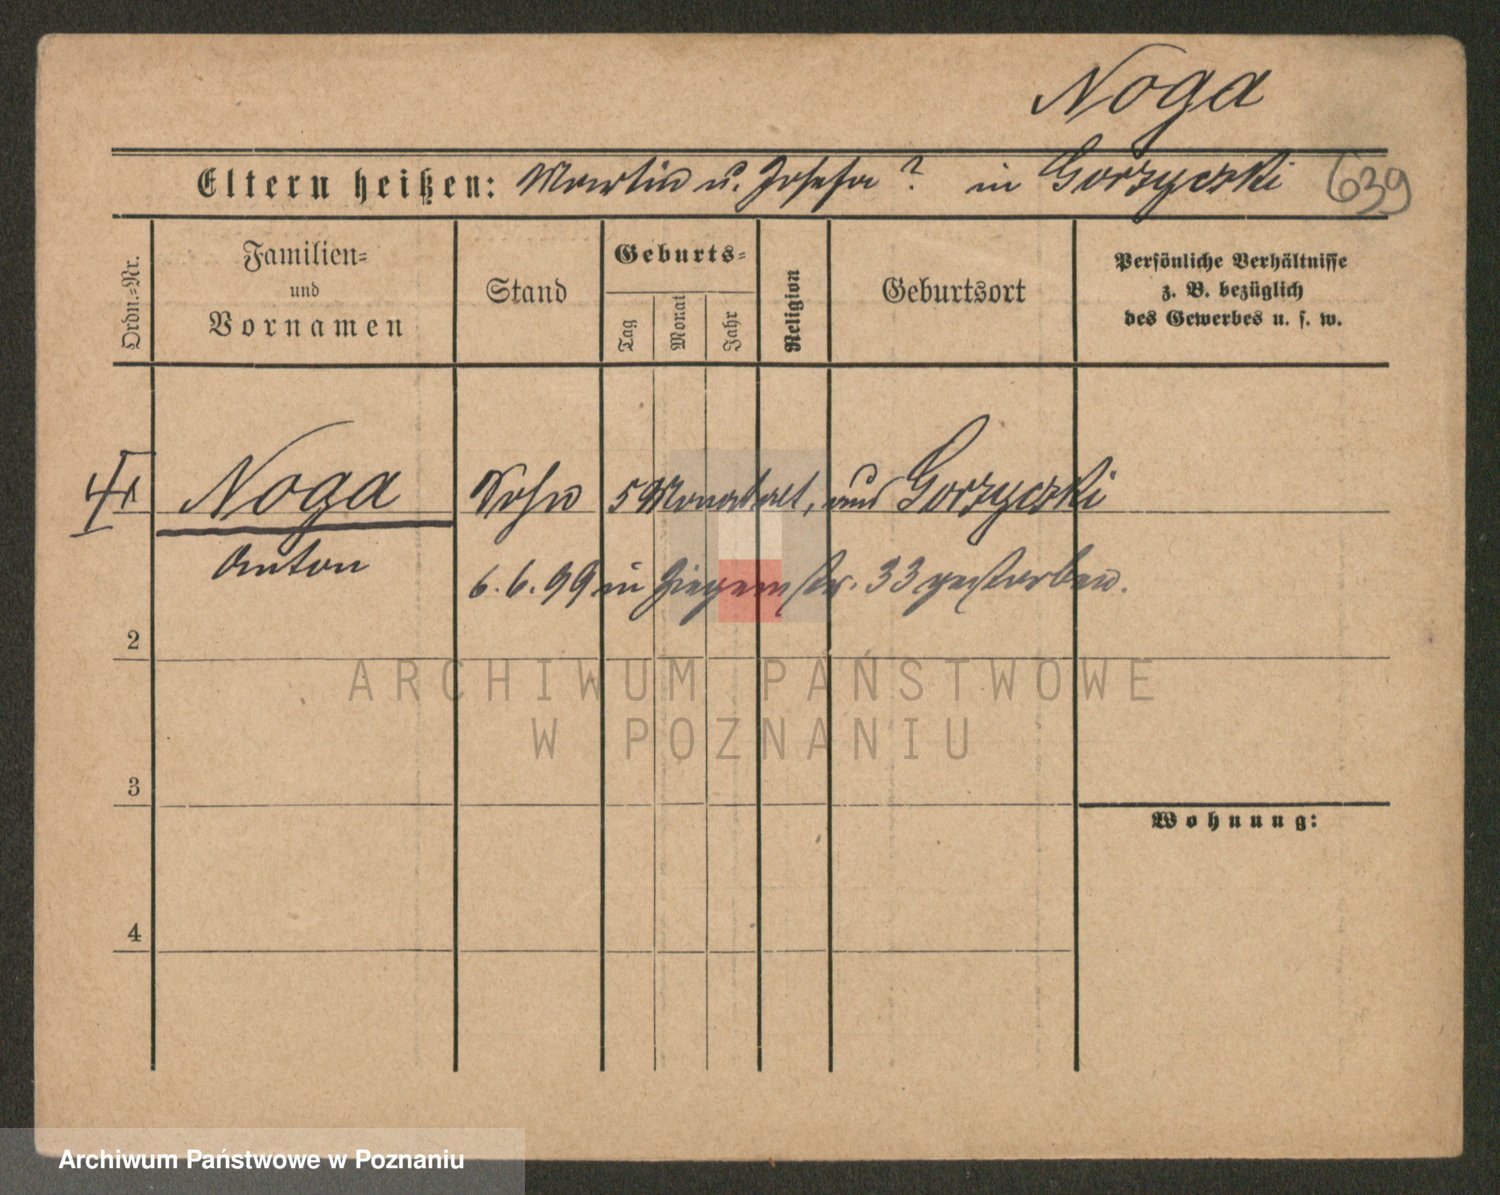 Noga
Eltern heißen: Martin u. Josefa ? in Gorzyczki 639
Ordn.-Nr.
Familien-
und
Vornamen
Stand
Geburts-
Tag
Monat
Jahr
Religion
Geburtsort
Persönliche Verhältnisse
z. B. bezüglich
des Gewerbes u. s. w.
Noga Sohn 5 Monat alt, aus Gorzyczki
Anton 6. 6. 99 in str. 33 gestorben.
2
ARCHIWUM PAŃSTWOWE
W POZNANIU
3
Wohnung:
4
Archiwum Państwowe w Poznaniu